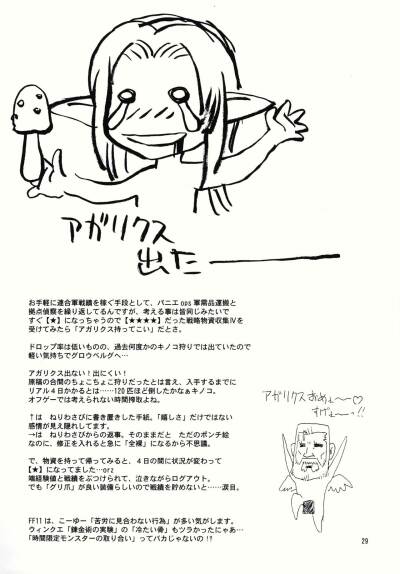 アガリクス
出たー
お手軽に連合軍戦績を稼ぐ手段として、バニエops軍需品運搬と
拠点偵察を繰り返してるんですが、考える事は皆同じみたいで
すぐ【★】になっちゃうので【★★★★】だった戦略物資収集Ⅳを
受けてみたら「アガリクス持ってこい」だとさ。
ドロップ率は低いものの、過去何度かのキノコ狩りでは出ていたので
軽い気持ちでグロウベルグへ…
アガリクス出ない！出にくい！
原稿の合間のちょこちょこ狩りだったとは言え、入手するまでに
リアル４日かかるとは……120匹ほど倒したかなぁキノコ。
オフゲーでは考えられない時間搾取よね。
↑は ねりわさびに書き置きした手紙。「嬉しさ」だけではない
感情が見え隠れしてます。
→は ねりわさびからの返事。そのままだと ただのポンチ絵
なのに、修正を入れると急に「全裸」になるから不思議。
で、物資を持って帰ってみると、４日の間に状況が変わって
【★】になってました…orz
端経験値と戦績をぶつけられて、泣きながらログアウト。
でも「グリ爪」が良い装備らしいので戦績を貯めないと……涙目。
アガリクスおめぇ〜♡
すげぇ〜っ!!
FF11は、こーゆー「苦労に見合わない行為」が多い気がします。
ウィンクエ「錬金術の実験」の「冷たい骨」もツラかったにゃあ…
「時間限定モンスターの取り合い」ってバカじゃないの!?
29